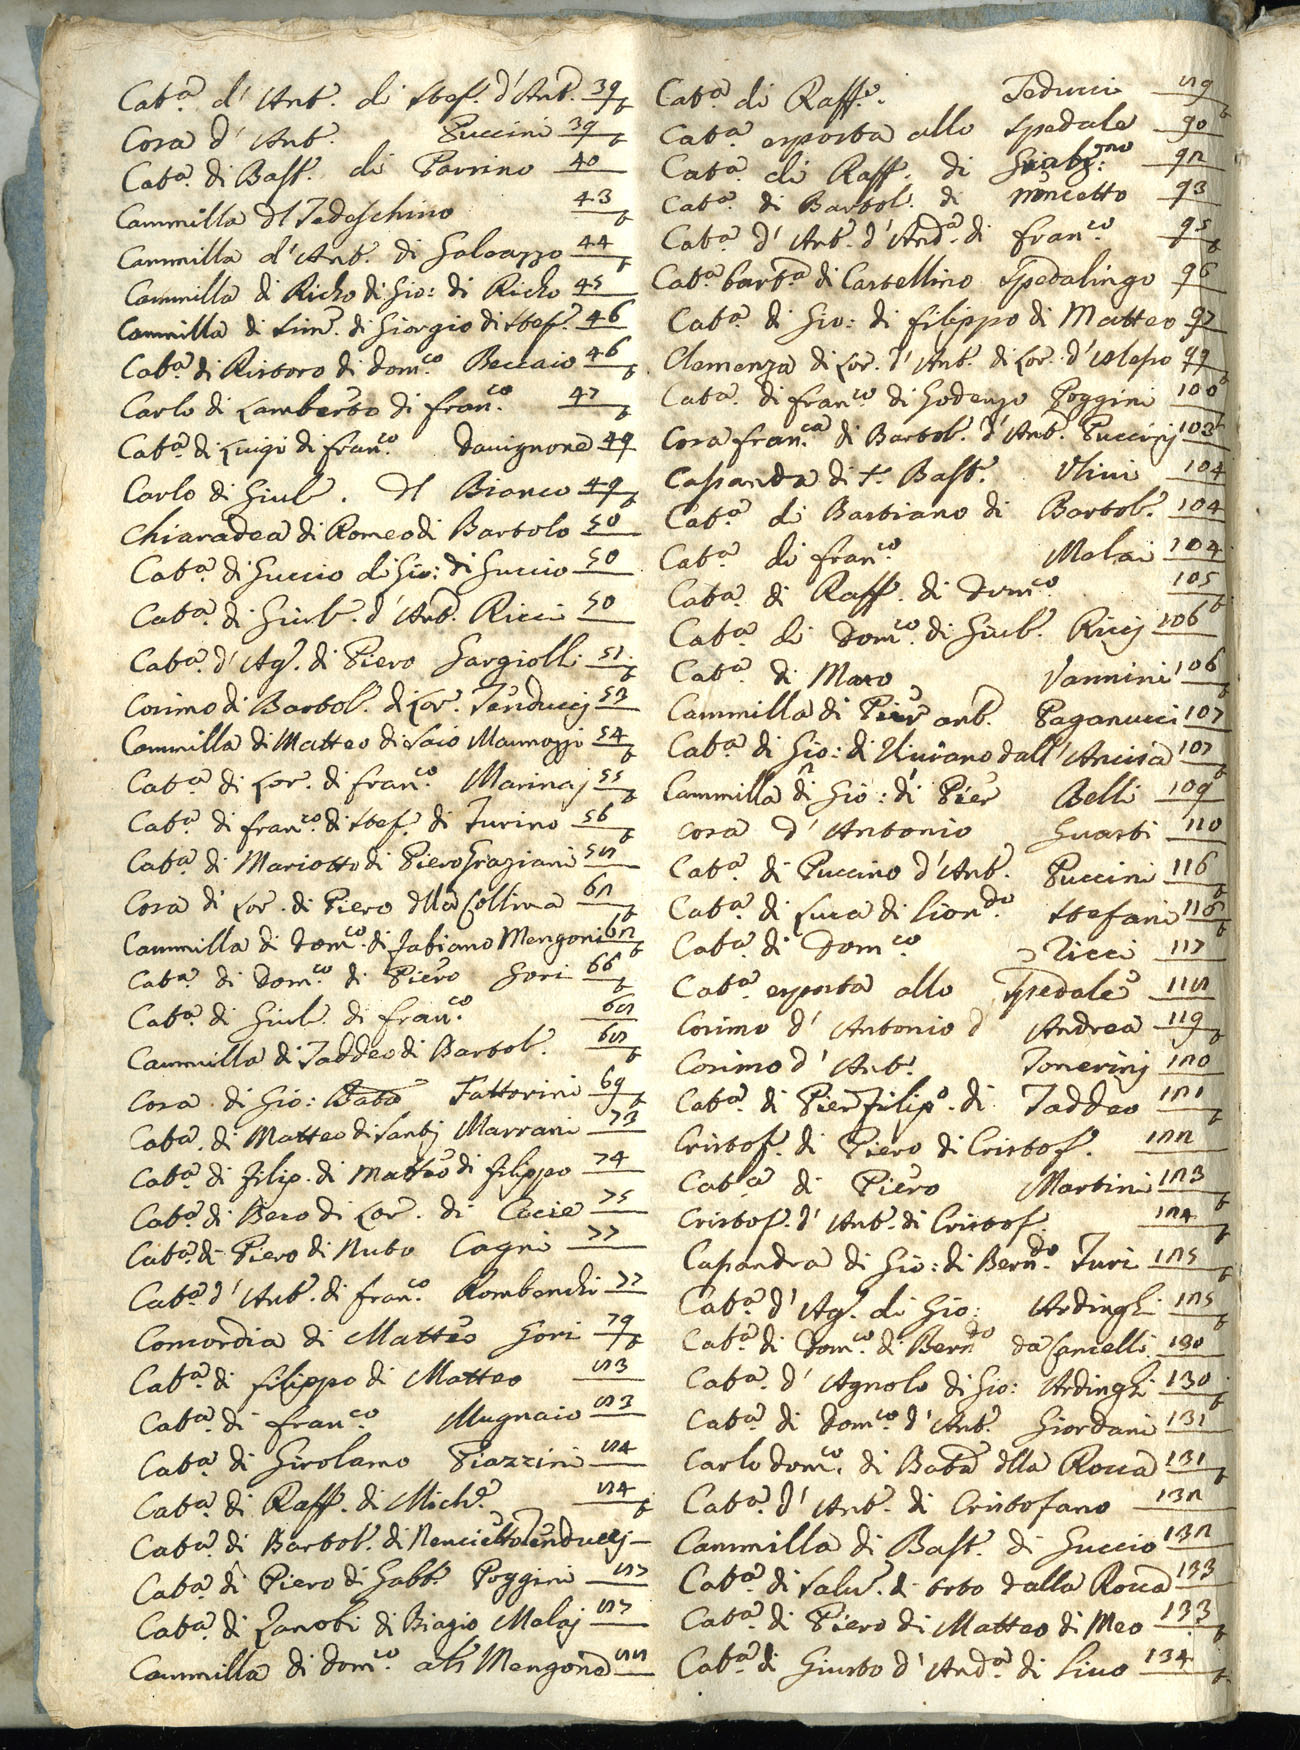 Cat.ª d' Ant.º di Stef.º d' Ant.º 39 t
Cosa d' Ant.º Puccini 39 t
Cat.ª di Bast.º di Parrino 40
Cammilla dl Tedeschino 43 t
Cammilla d' Ant.º di Galeazzo 44 t
Cammilla di Richo di Gio: di Richo 45
Cammilla di Sim.º di Giorgio di Stef.º 46
Cat.ª di Ristoro di Dom.co Beccaio 46 t
Carlo di Lamberto di Fran.co 47 t
Cat.ª di Luigi di Fran.co Davignone 49
Carlo di Giul.º dl Bianco 49 t
Chiaradea di Romeo di Bartolo 50
Cat.ª di Guccio di Gio: di Guccio 50
Cat.ª di Giul.º d' Ant.º Ricci 50
Cat.ª d' Ag.º di Piero Gargiolli 51 t
Cosimo di Bartol.º di Lor.º Tenducci 53
Cammilla di Matteo di Maunozzi 54 t
Cat.ª di Lor.º di Fran.co Marinaj 55 t
Cat.ª di Fran.co di Stef.º di Turino 56 t
Cat.ª di Mariotto di Piero Graziani 58
Cosa di Lor.º di Piero dlla Collina 62 t
Cammilla di Dom.co di Fabiano Mengoni 62 t
Cat.ª di Dom.co di Piero Gori 66 t
Cat.ª di Giul.º di Fran.co 68
Cammilla di Taddeo di Bartol.º 68 t
Cosa di Gio: Bat.ª Fattorini 69 t
Cat.ª di Matteo di Santj Marrani 73
Cat.ª di Filip.º di Matteo di Filippo 74
Cat.ª di Beco di Lor.º di Cecie 75
Cat.ª di Piero di Nuto Cagni 77
Cat.ª d' Ant.º di Fran.co Rombenchi 77
Concordia di Matteo Gori 79 t
Cat.ª di Filippo di Matteo 83
Cat.ª di Fran.co Mugnaio 83
Cat.ª di Girolamo Piazzini 84
Cat.ª di Raff.º di Mich.e 84 t
Cat.ª di Bartol.º di Nencietto Tenduccj
Cat.ª di Piero di Gabb.º Poggini 87
Cat.ª di Zanobi di Biagio Malaj 87
Cammilla di Dom.co als Mengone 88
Cat.ª di Raff.º Teducci 89 t
Cat.ª esposta allo Spedale 90
Cat.ª di Raff.º di 92
Cat.ª di Bartol.º di Noncetto 93
Cat.ª d' Ant.º d' And.ª di Fran.co 95 t
Cat.ª Barb.ª di Castellino Spedalingo 96
Cat.ª di Gio: di Filippo di Matteo 97
Clemenza di Lor.º d' Ant.º di Lor.º d' 99 t
Cat.ª di Fran.co di Godenzo Poggini 100
Cosa Fran.ca di Bartol.º d' Ant.º Puccinj 103
Casandra di S. Bast.º Ulivi 104
Cat.ª di Bastiano di Bartol.º 104
Cat.ª di Fran.co Malai 104
Cat.ª di Raff.º di Dom.co 105 t
Cat.ª di Dom.co di Giul.º Riccj 106
Cat.ª di Maso Vannini 106 t
Cammilla di Pier Ant.º Paganucci 107
Cat.ª di Gio: di Viviano dall' Ancisa 107 t
Cammilla di Gio: di Pier Belli 109
Cosa d' Antonio Guasti 110
Cat.ª di Puccino d' Ant.º Puccini 116 t
Cat.ª di Luca di Lion.do Stefani 116 t
Cat.ª di Dom.co Ricci 117
Cat.ª esposta allo Spedale 118
Cosimo d' Antonio d' Andrea 119 t
Cosimo d' Ant.º Tonerinj 120
Cat.ª di Pier Filip.º di Taddeo 121 t
Cristof.º di Piero di Cristof.º 122
Cat.ª di Piero Martini 123 t
Cristof.º d' Ant.º di Cristof.º 124 t
Casandra di Gio: di Bern.do Turi 125 t
Cat.ª d' Ag.º di Gio: Ardinghi 125 t
Cat.ª di Dom.co di Bern.do da Cancelli 130
Cat.ª d' Agnolo di Gio: Ardinghi 130 t
Cat.ª di Dom.co d' Ant.º Giordani 131
Carlo Dom.co di Bat.ª dlla Rocca 131 t
Cat.ª d' Ant.º di Cristofano 132
Cammilla di Bast.º di Guccio 132
Cat.ª di Salv.e di Orto dalla Rocca 133
Cat.ª di Piero di Matteo di Meo 133 t
Cat.ª di Giusto d' And.ª di Livo 134 t